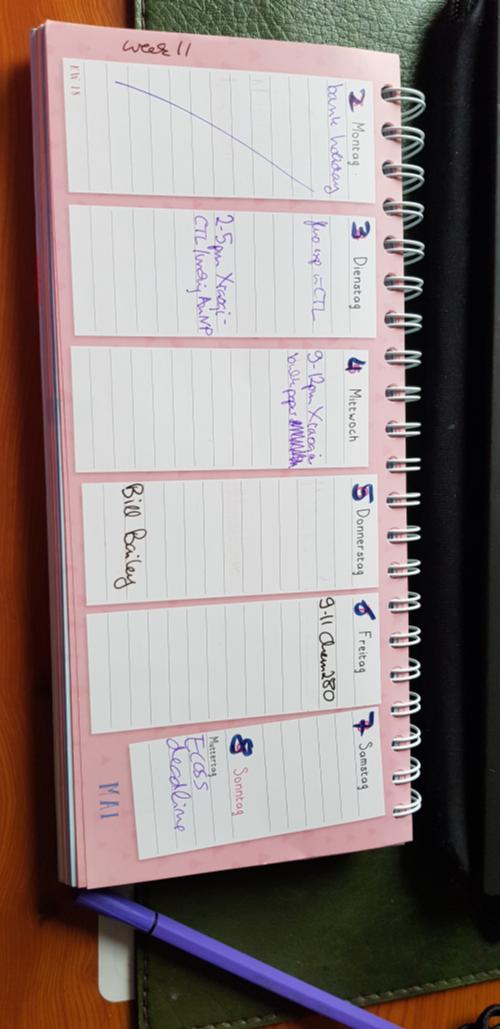 week 11
KW 18
2 Montag
bank holiday
3 Dienstag
2-5pm
CTL
4 Mittwoch
9-12pm
5 Donnerstag
Bill Bailey
6 Freitag
9-11 Chem280
7 Samstag
8 Sonntag
Muttertag
ECOSS
deadline
MAI